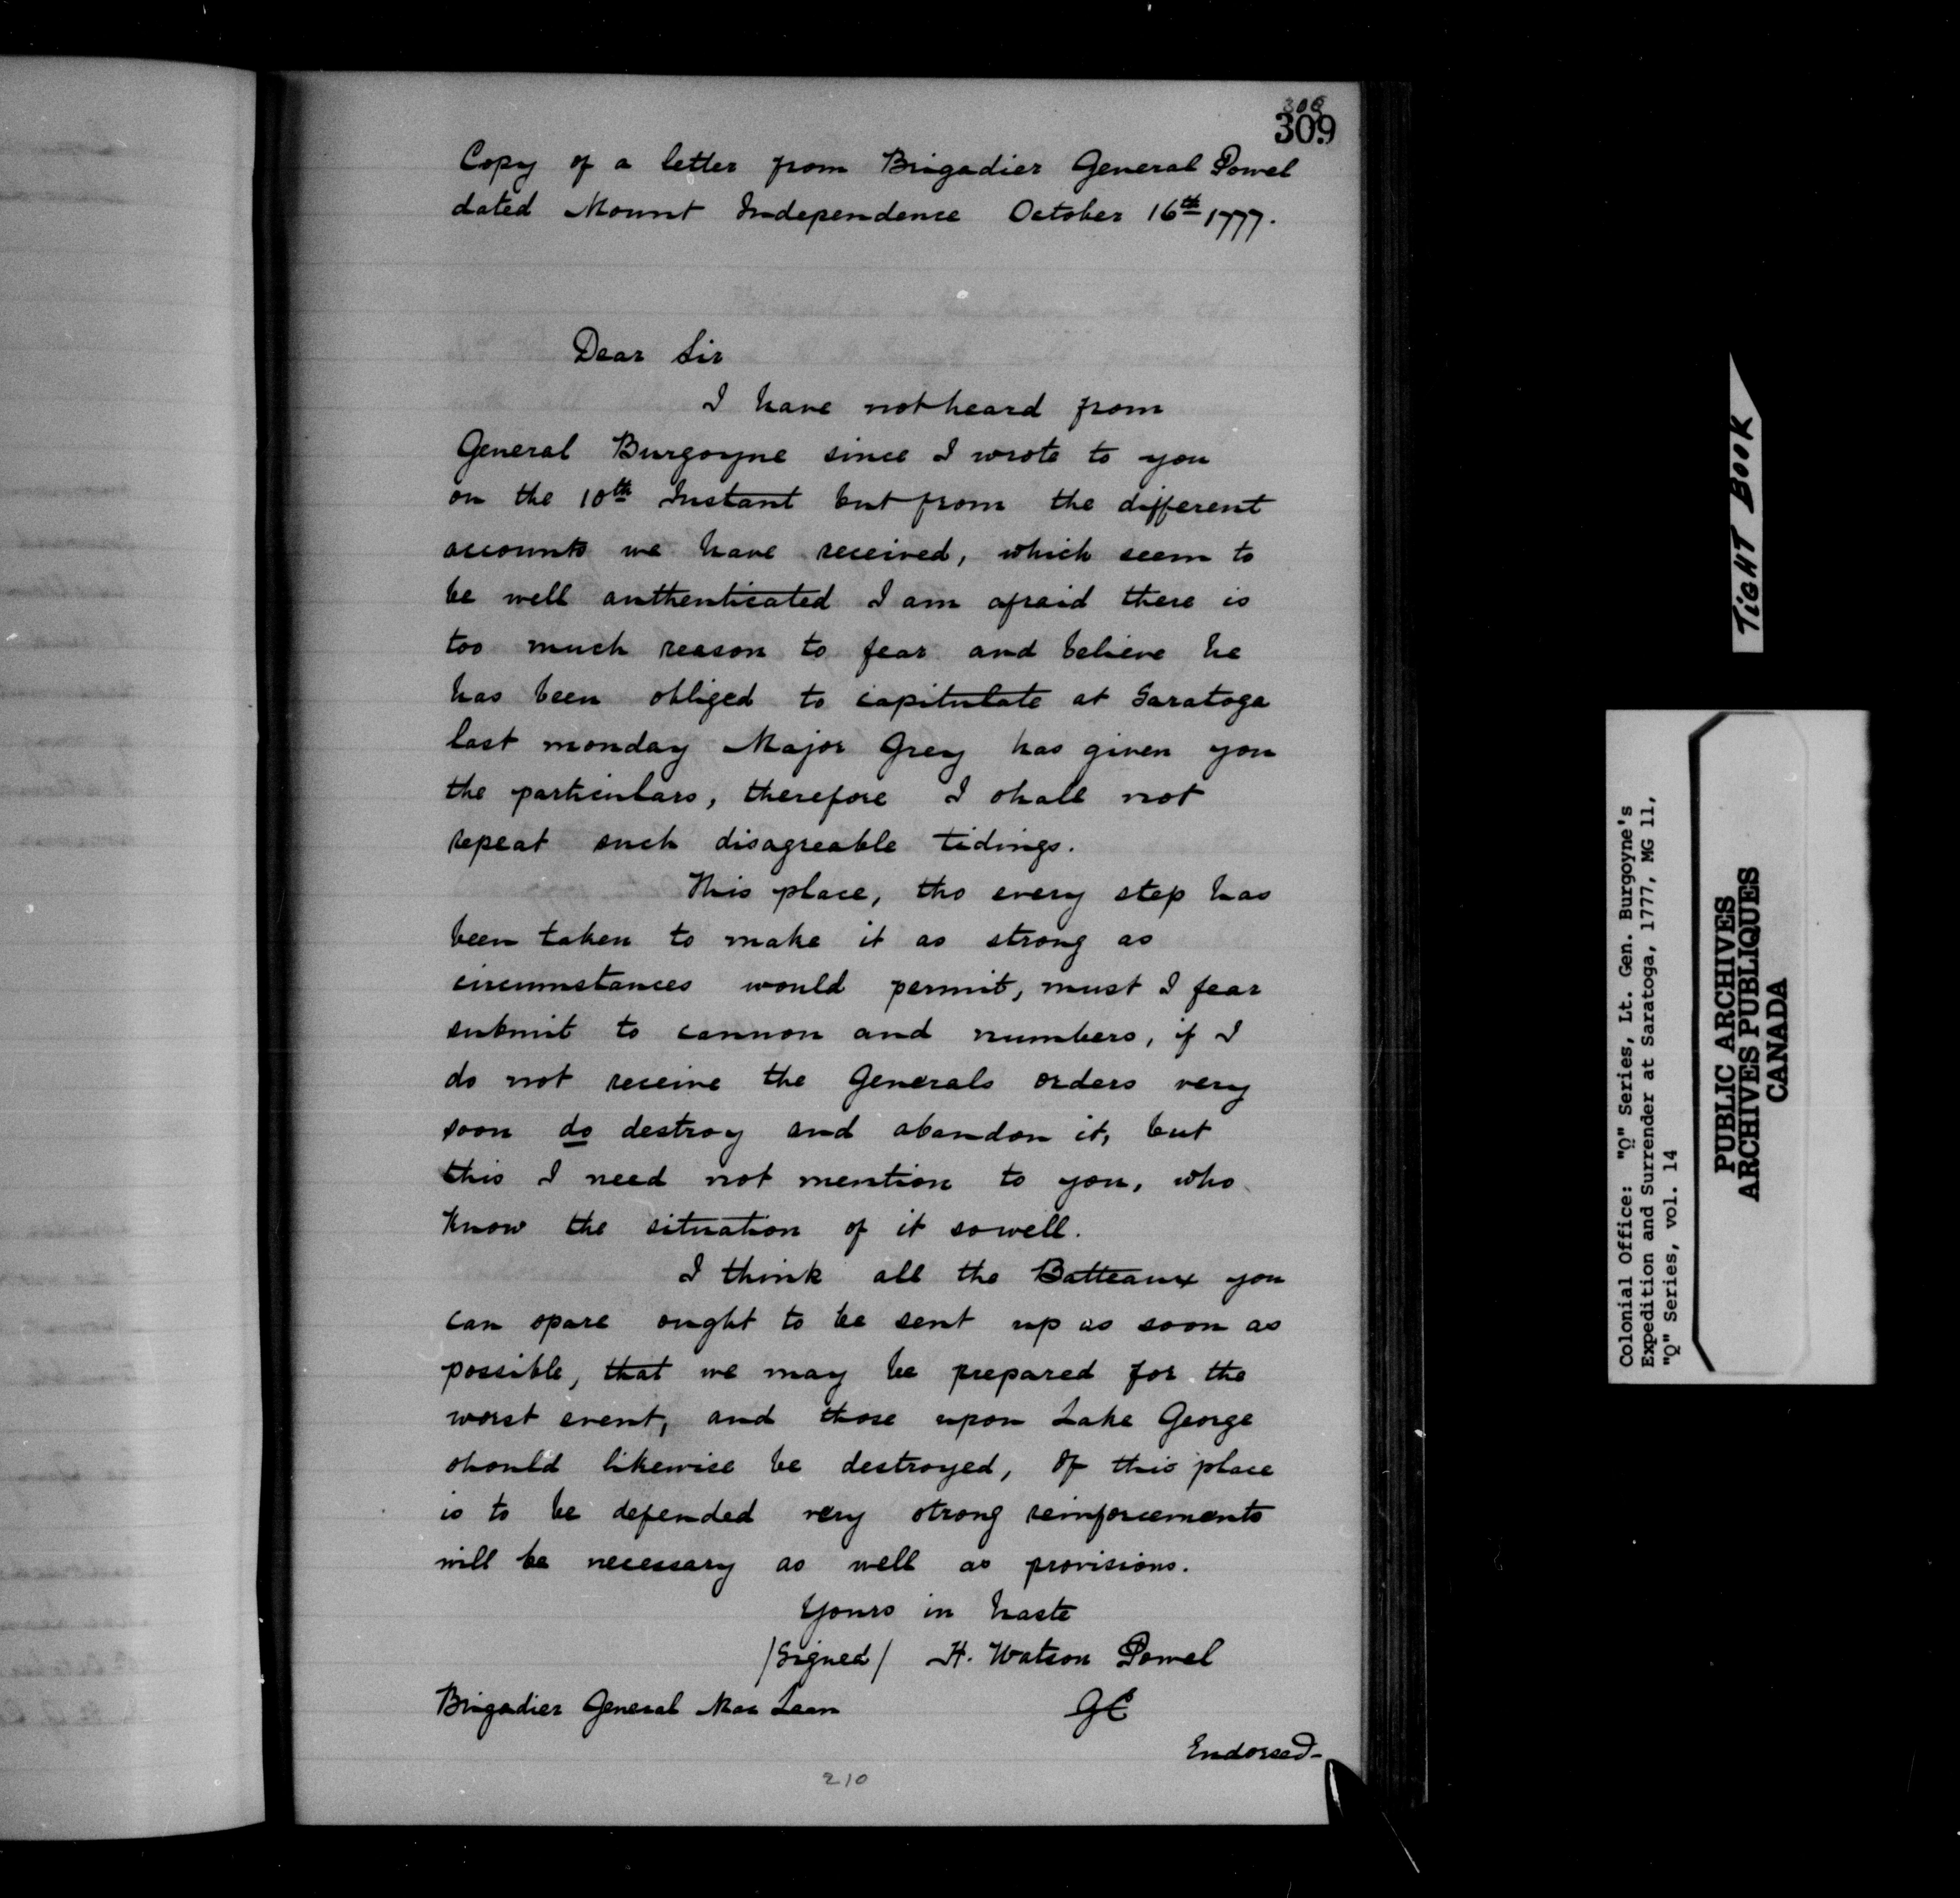 306
309
Copy of a letter from Brigadier General Powel
dated Mount Independence October 16th 1777.
Dear Sir
I have not heard from
General Burgoyne since I wrote to you
on the 10th Instant but from the different
accounts we have received, which seem to
be well authenticated I am afraid there is
too much reason to fear and believe he
has been obliged to capitulate at Saratoga
last monday Major Grey has given you
the particulars, therefore I shall not
repeat such disagreable tidings.
This place, tho every step has
been taken to make it as strong as
circumstances would permit, must I fear
submit to cannon and numbers, if I
do not receive the Generals orders very
soon do destroy and abandon it, but
this I need not mention to you, who
know the situation of it so well.
I think all the Batteaux you
can spare ought to be sent up as soon as
possible, that we may be prepared for the
worst event, and those upon Lake George
should likewise be destroyed, If this place
is to be defended very strong reinforcements
will be necessary as well as provisions.
Yours in haste
/Signed/ H. Watson Powel
Brigadier General Mac Lean
GC
Endorsed-
210
TiGHT BOOK
Colonial Office: "Q" Series, Lt. Gen. Burgoyne's
Expedition and Surrender at Saratoga, 1777, MG 11,
"Q" Series, vol. 14
PUBLIC ARCHIVES
ARCHIVES PUBLIQUES
CANADA